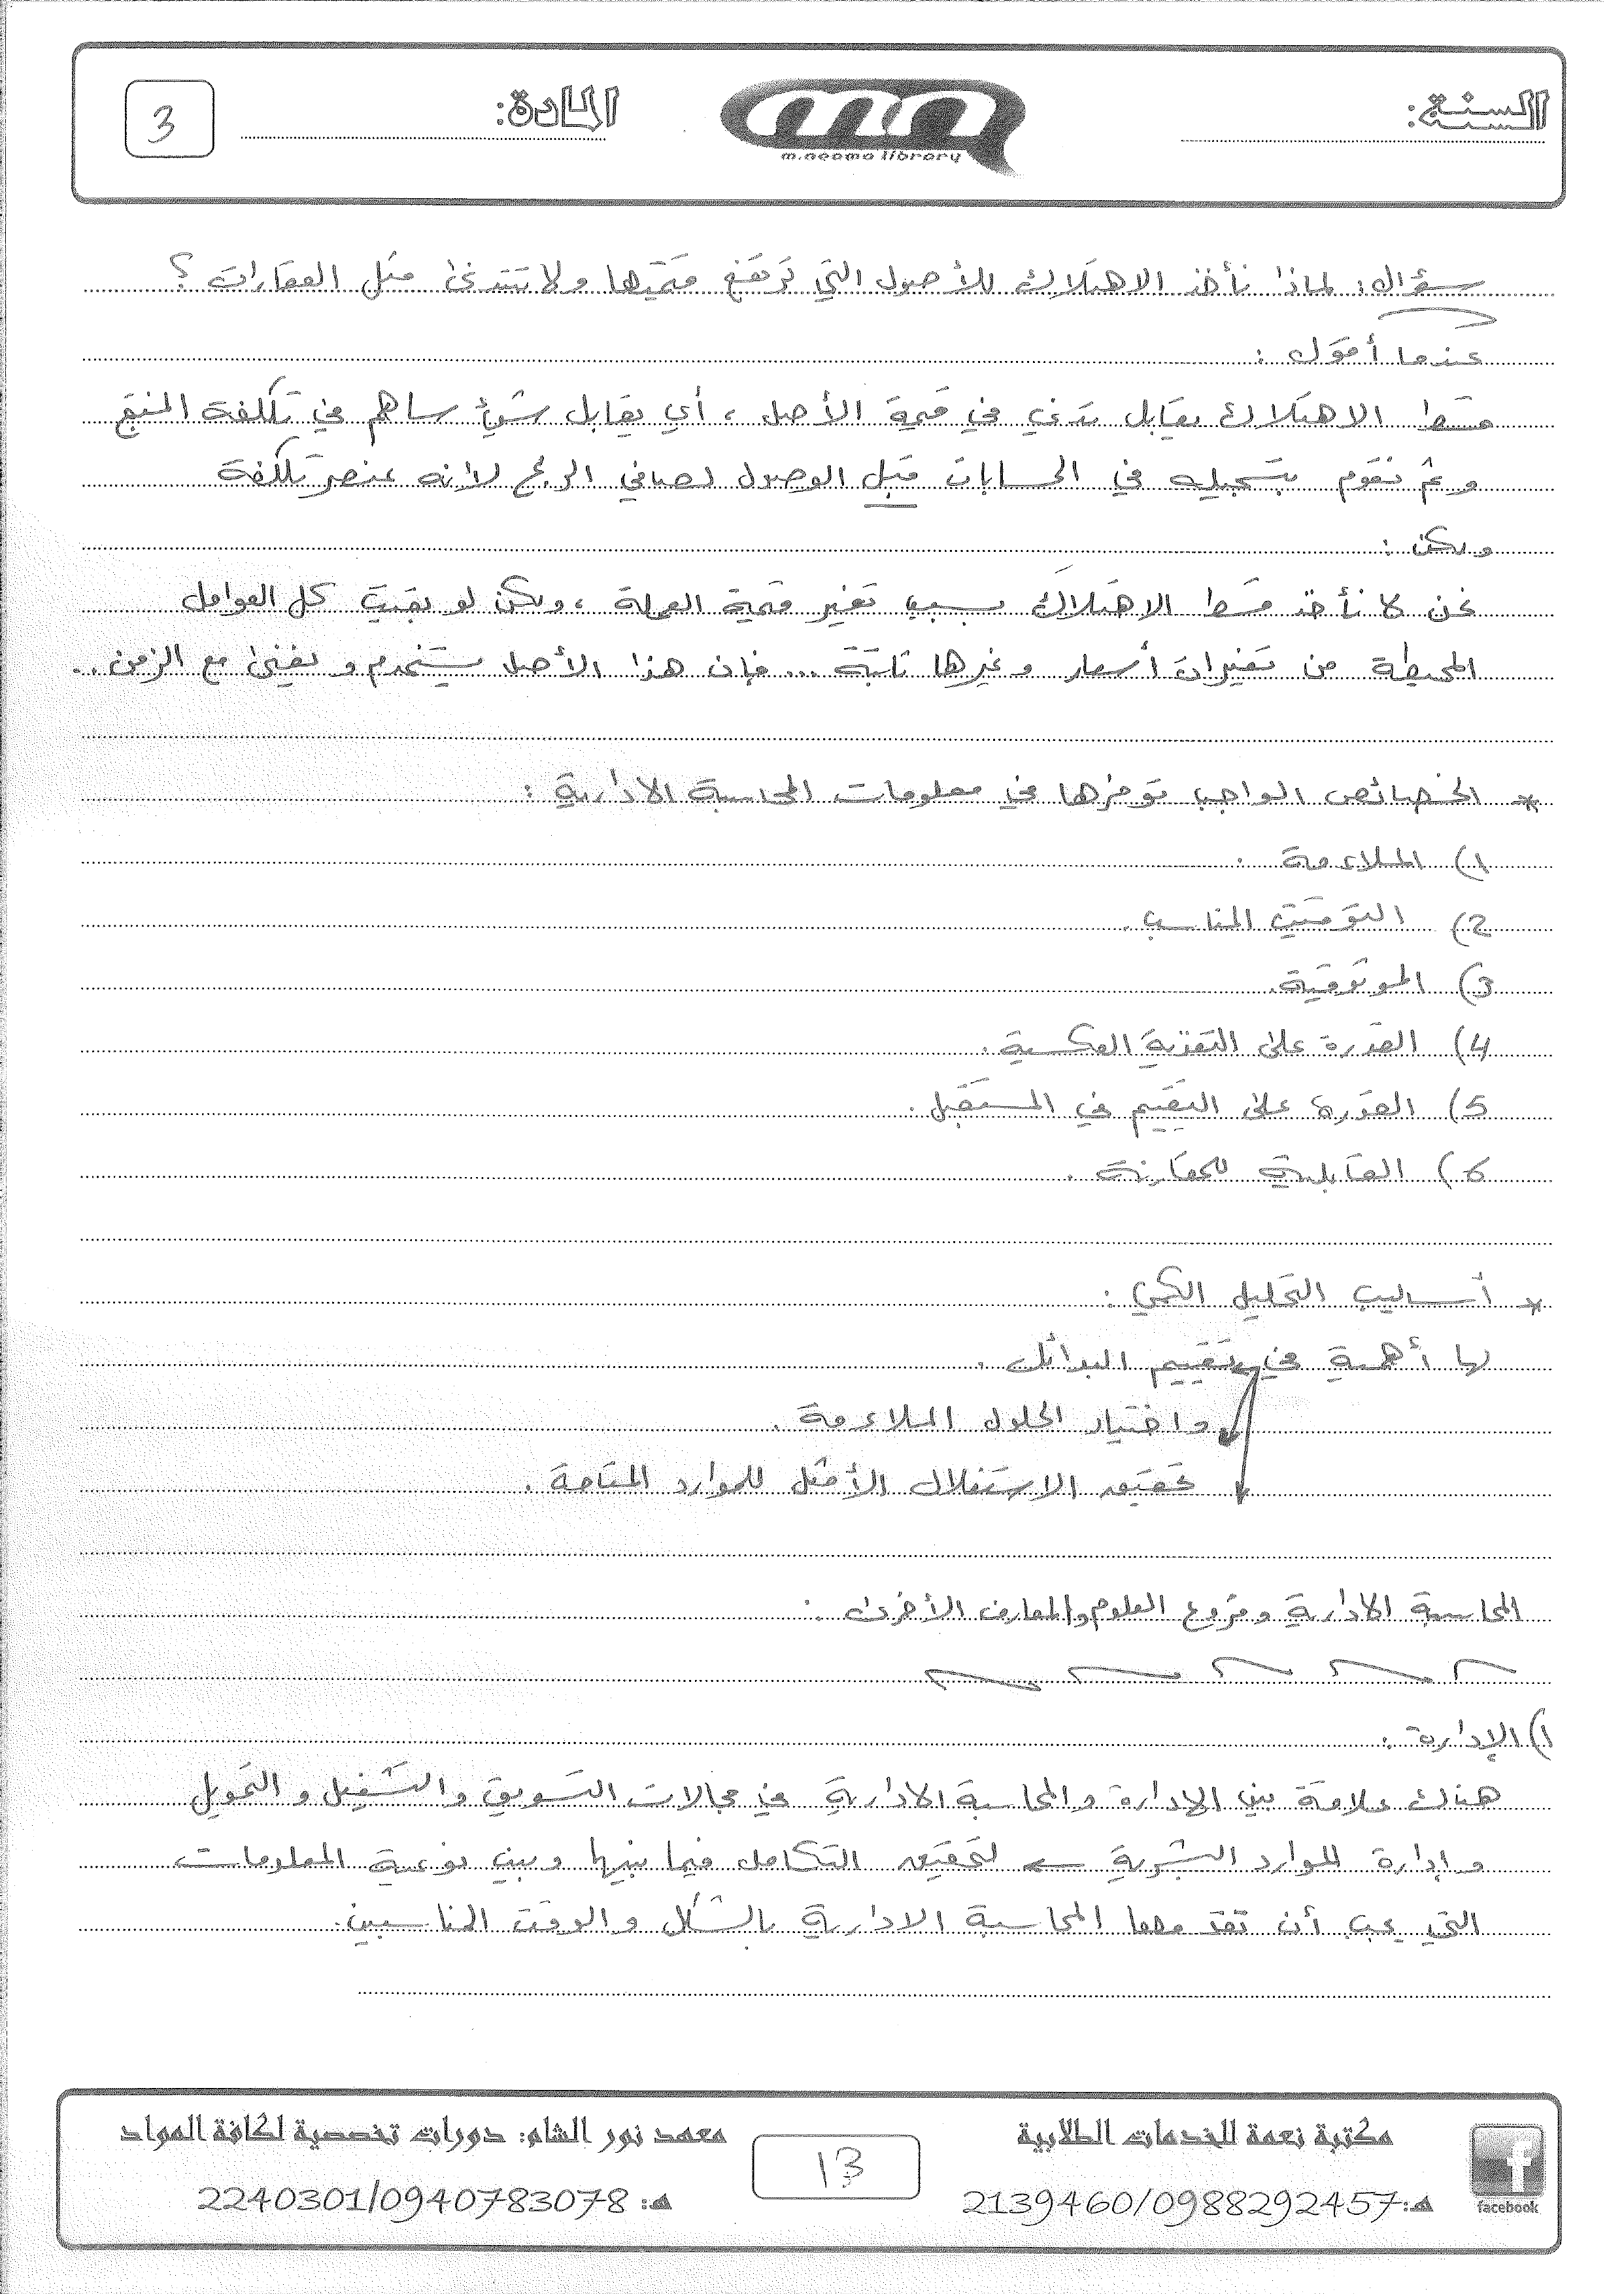 السنة:
m.neama library
المادة:
3
سؤال: لماذا نأخذ الاهتلاك للأصول التي ترتفع قيمتها ولا تتدنى مثل العقارات؟
عندما أقول:
قسط الاهتلاك يقابل تدني في قيمة الأصل، أي يقابل شيئ ساهم في تكلفة المنتج
وثم نقوم بتسجيله في الحسابات قبل الوصول لصافي الربح لانه عنصر تكلفة
ولكن:
نحن لا نأخذ قسط الاهتلاك بسبب تغير قيمة العملة، ولكن لو بقيت كل العوامل
المحيطة من تغيرات أسعار وغيرها ثابتة... فإن هذا الأصل يستخدم ويفنى مع الزمن..
* الخصائص الواجب توفرها في معلومات المحاسبة الادارية:
1) الملاءمة.
2) التوقيت المناسب.
3) الموثوقية.
4) القدرة على التغذية العكسية.
5) القدرة على التقييم في المستقبل.
6) القابلية للمقارنة.
* أساليب التحليل الكمي:
لها أهمية في تقييم البدائل.
واختيار الحلول الملاءمة.
تحقيق الاستغلال الأمثل للموارد المتاحة.
المحاسبة الادارية وفروع العلوم والمعارف الأخرى:
1) الإدارة:
هناك علاقة بين الإدارة والمحاسبة الادارية في مجالات التسويق والتشغيل والتمويل
وإدارة الموارد البشرية ← لتحقيق التكامل فيما بينها وبين نوعية المعلومات
التي يجب أن تقدمها المحاسبة الادارية بالشكل والوقت المناسبين.
facebook
مكتبة نعمة للخدمات الطلابية
هـ: 2139460/0988292457
13
معهد نور الشام: دورات تخصصية لكافة المواد
هـ: 2240301/0940783078